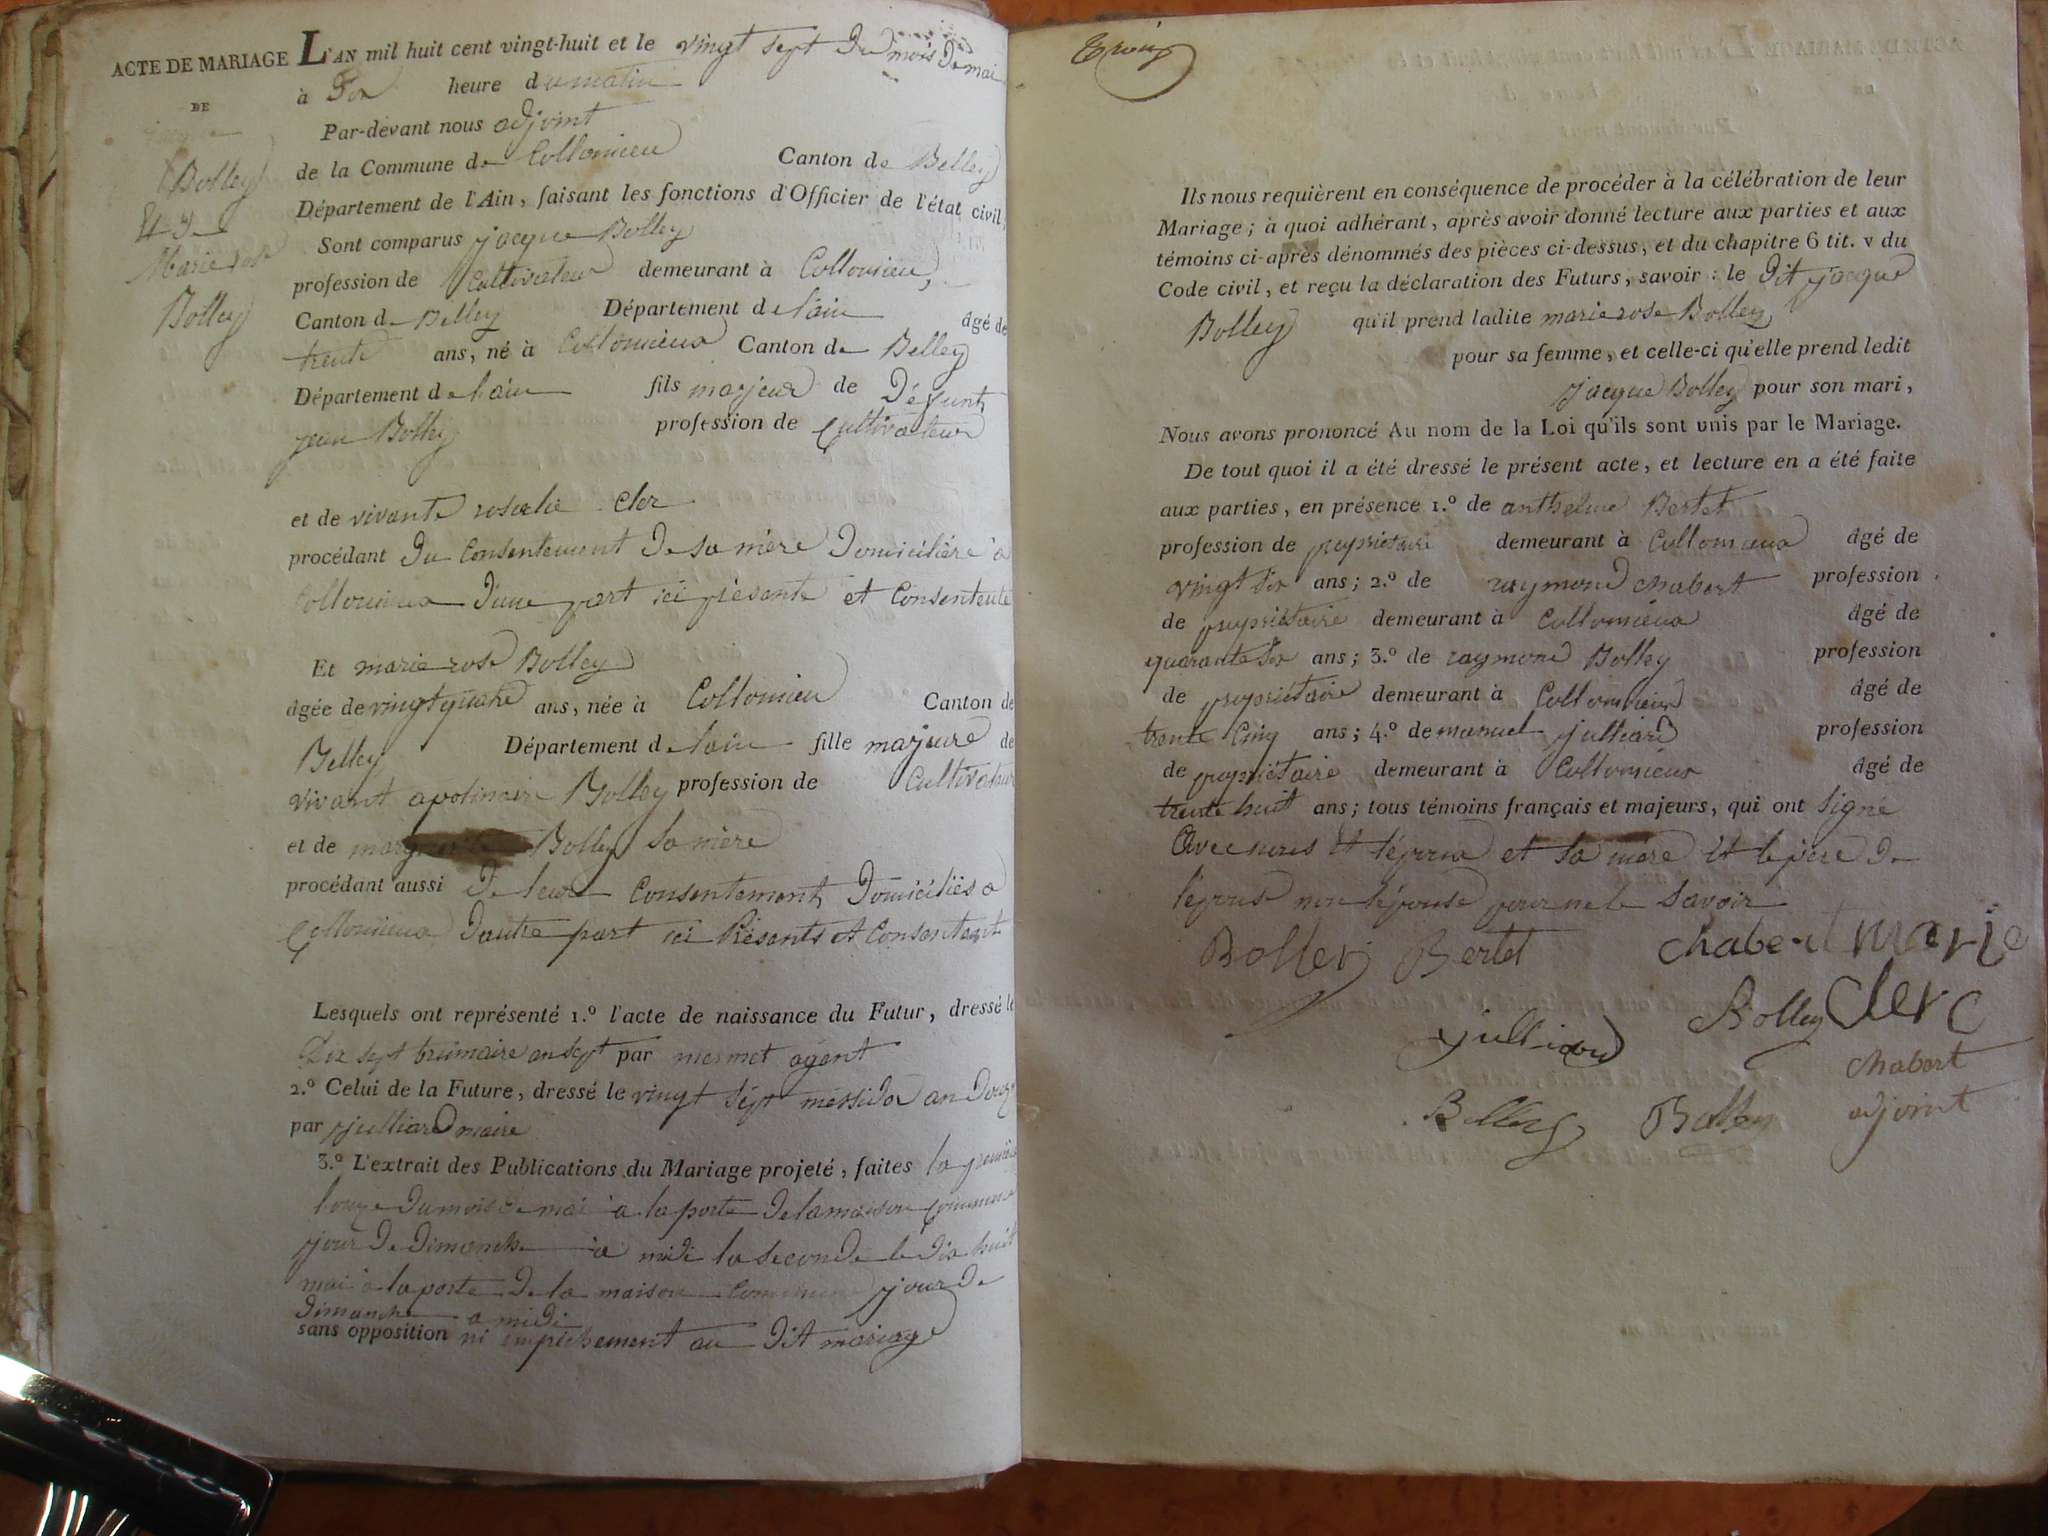 ACTE DE MARIAGE
DE
Bolley
Et
Marie rose
Bolley
L'AN mil huit cent vingt-huit et le vingt sept du mois de mai
à heure du matin
Par-devant nous adjoint
de la Commune de Collomieu Canton de Belley
Département de l'Ain, faisant les fonctions d'Officier de l'état civil,
Sont comparus jacque Bolley
profession de Cultivateur demeurant à Collomieu,
Canton de Belley Département de lain âgé de
trente ans, né à Collomieux Canton de Belley
Département de lain fils majeur de Défunt
jean Bolley profession de Cultivateur
et de vivante rosalie Cler
procédant du Consentement De sa mère Domiciliére a
Collomieux Dune part ici présente et Consentente
Et marie rose Bolley
âgée de vingt quatre ans, née à Collomieu Canton de
Belley Département de lain fille majeure de
vivant apolinaire Bolley profession de Cultivateur
et de Bolley sa mère
procédant aussi De leur Consentement Domiciliés a
Collomieux Dautre part ici Présents et Consentent
Lesquels ont représenté 1.º l'acte de naissance du Futur, dressé le
Dix sept brumaire an sept par mermet agent
2.º Celui de la Future, dressé le vingt sept messidor an Douze
par julliard maire
3.º L'extrait des Publications du Mariage projeté, faites la première
lonze du mois de mai a la porte De la maison Commune
jour De Dimanche a midi la seconde le Dix huit
mai a la porte De la maison Commune jour De
Dimanche a midi
sans opposition ni empêchement au Dit mariage
Ils nous requièrent en conséquence de procéder à la célébration de leur
Mariage; à quoi adhérant, après avoir donné lecture aux parties et aux
témoins ci-après dénommés des pièces ci-dessus, et du chapitre 6 tit. v du
Code civil, et reçu la déclaration des Futurs, savoir: le Dit jacque
Bolley qu'il prend ladite marie rose Bolley
pour sa femme, et celle-ci qu'elle prend ledit
jacque Bolley pour son mari,
Nous avons prononcé Au nom de la Loi qu'ils sont unis par le Mariage.
De tout quoi il a été dressé le présent acte, et lecture en a été faite
aux parties, en présence 1.º de anthelme Bertet
profession de propriétaire demeurant à Collomieux âgé de
vingt six ans; 2.º de raymond chabert profession
de propriétaire demeurant à Collomieux âgé de
quarante six ans; 3.º de raymond Bolley profession
de propriétaire demeurant à Collomieux âgé de
trente Cinq ans; 4.º de manuel julliard profession
de propriétaire demeurant à Collomieux âgé de
trente huit ans; tous témoins français et majeurs, qui ont signé
Avec nous et lépoux et sa mère et le père De
lépouse non lépouse pour ne le savoir
Bolley Bertet chabert marie
julliard Bolley Clerc
Bolley Bolley chabert
adjoint